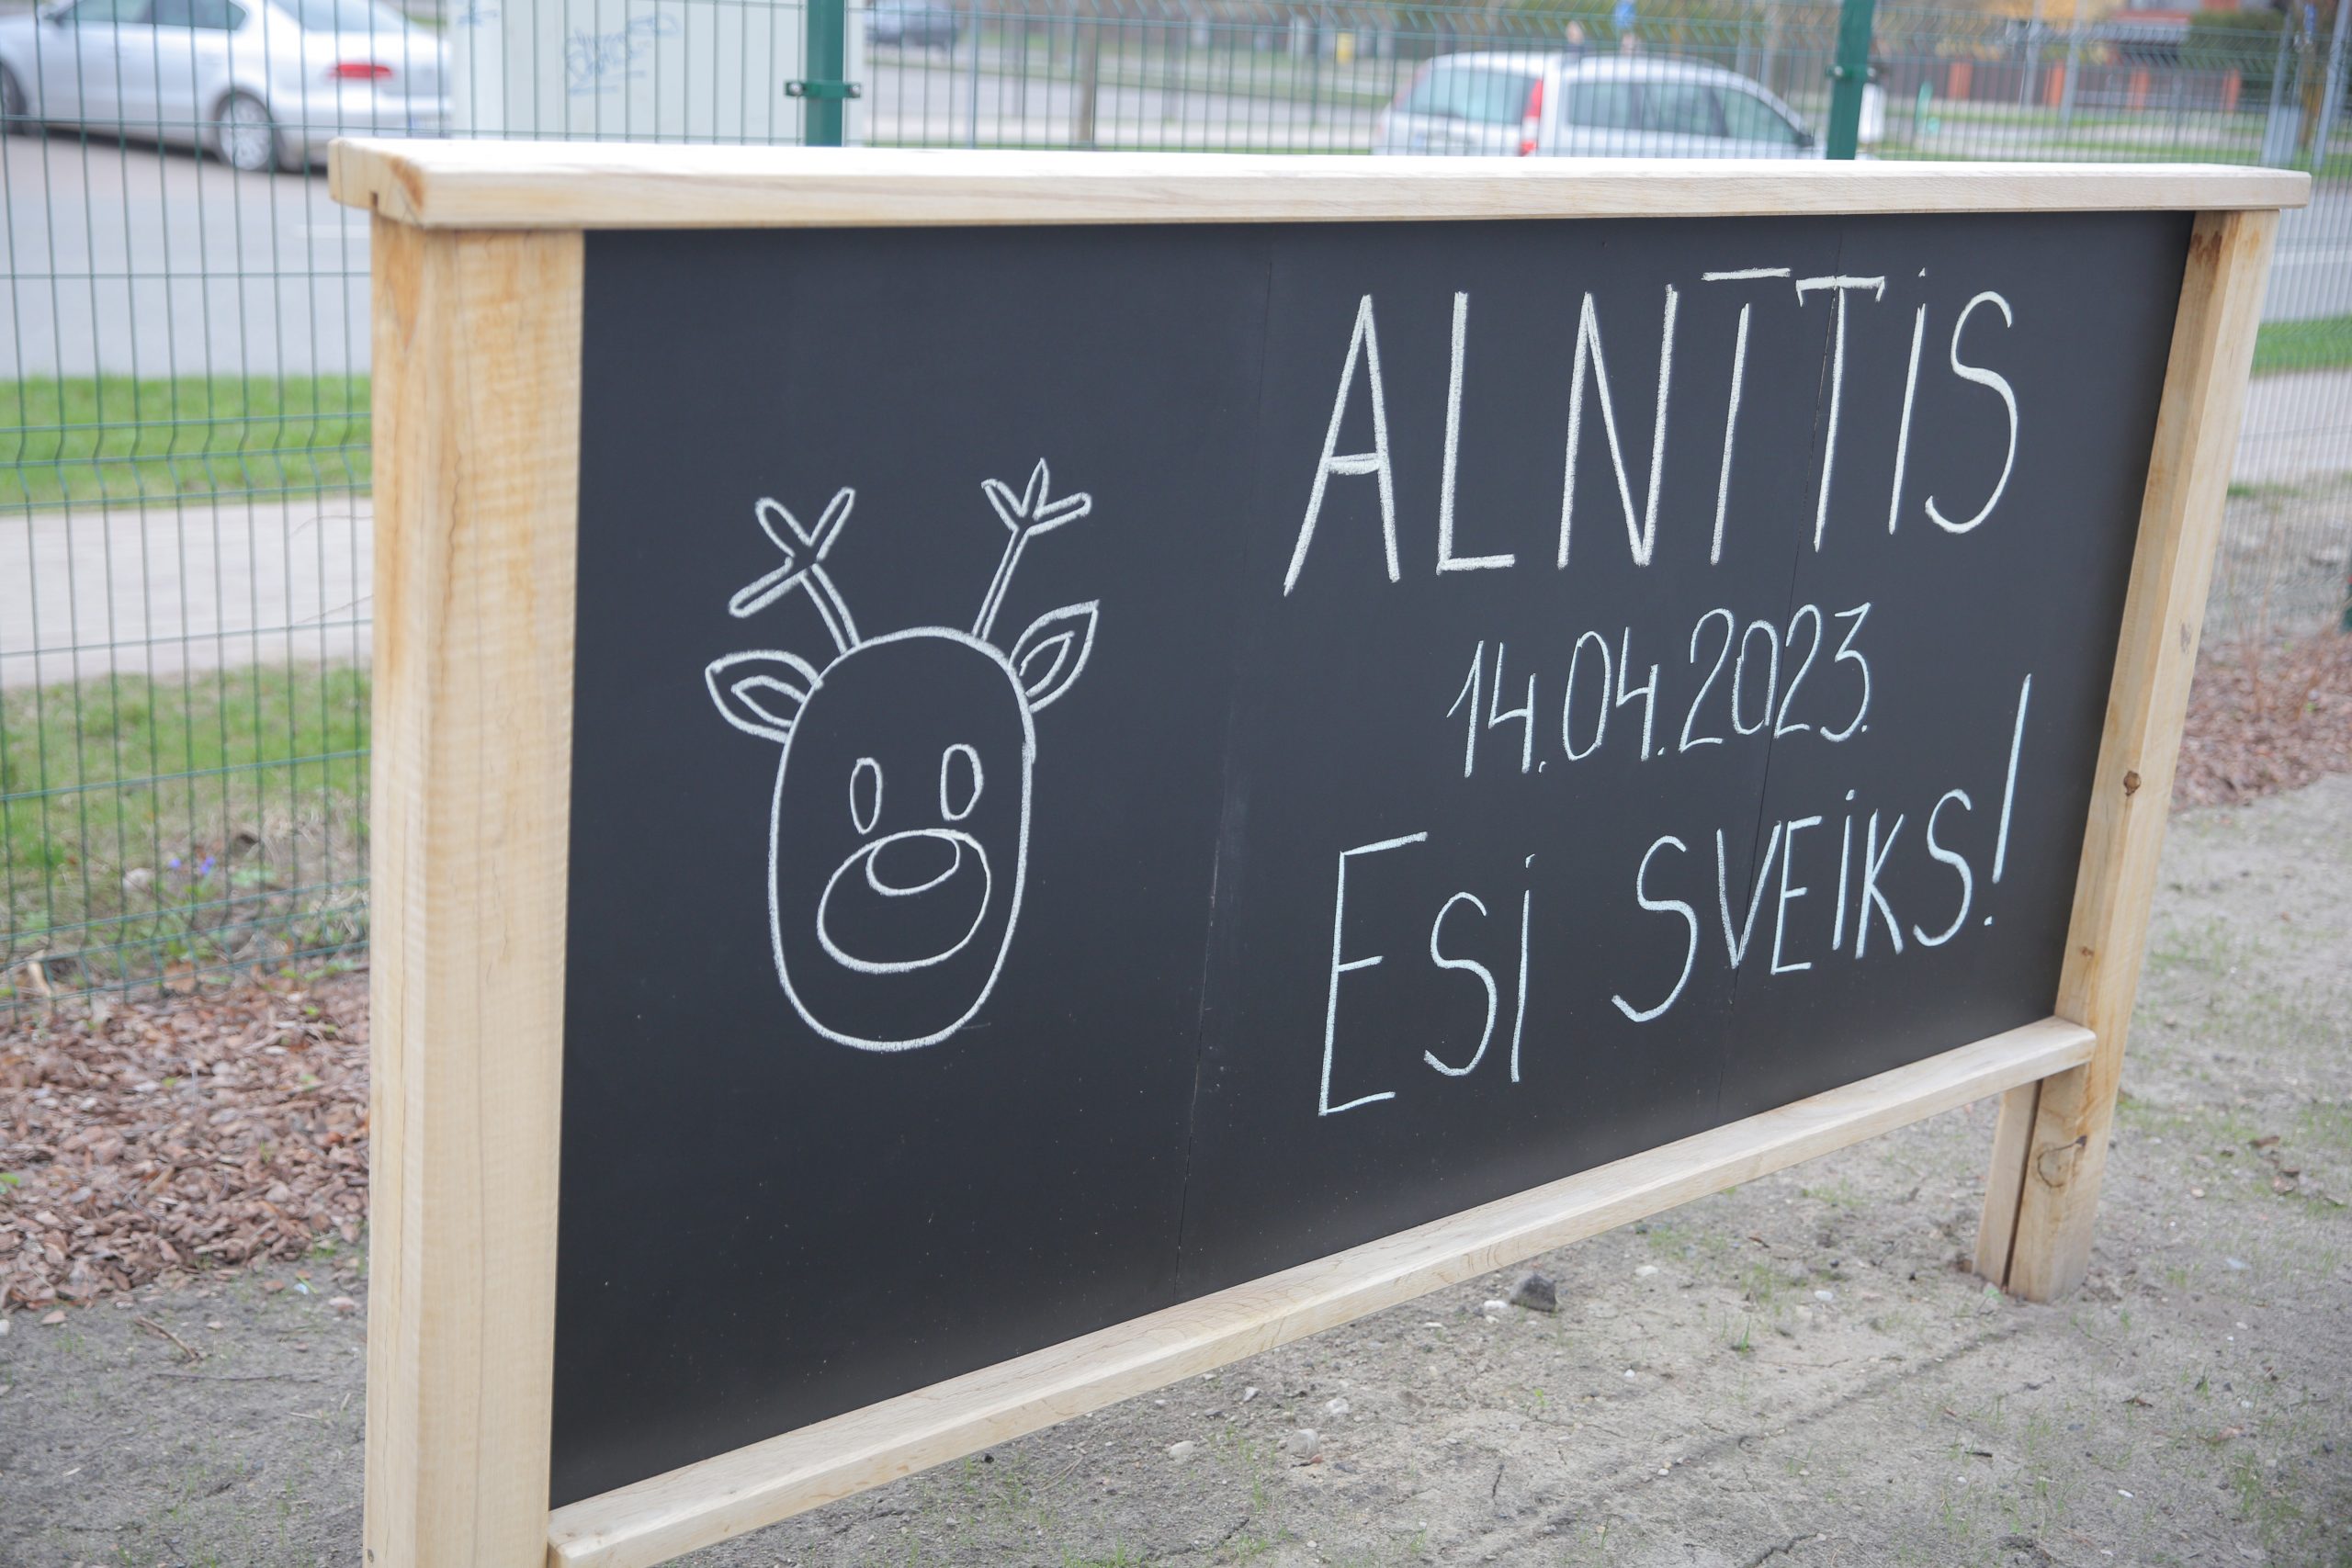 ALNĪTIS
14.04.2023.
ESi SVEiKS!